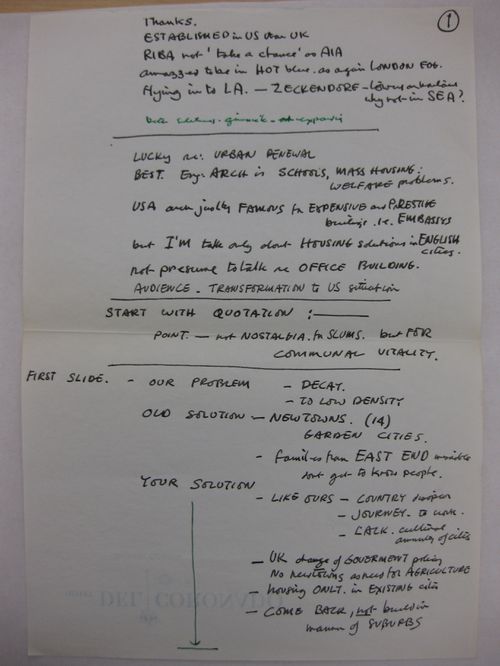 ①
Thanks.
ESTABLISHED in US than UK
RIBA not 'take a chance' as AIA
amazed to be in HOT blue. as again LONDON FOG.
Flying in to LA. — ZECKENDORF — towers
why not in SEA?
LUCKY re: URBAN RENEWAL
BEST. Eng. ARCH is SCHOOLS, MASS HOUSING:
WELFARE problems.
USA arch justly FAMOUS for EXPENSIVE and PRESTIGE
buildings i.e. EMBASSYS
but I'M talk only about HOUSING solutions in ENGLISH
cities.
not presume to talk re OFFICE BUILDING.
AUDIENCE — TRANSFORMATION to US situation
START WITH QUOTATION :—
POINT. — not NOSTALGIA for SLUMS. but FOR
COMMUNAL VITALITY.
FIRST SLIDE. - OUR PROBLEM - DECAY.
- TO LOW DENSITY
OLD SOLUTION — NEWTOWNS. (14)
GARDEN CITIES.
- Families from EAST END
dont get to know people.
YOUR SOLUTION
- LIKE OURS - COUNTRY
- JOURNEY - to work.
- LACK. cultural
of cities
- UK change of GOVERMENT policy
No newtowns as need for AGRICULTURE
- housing ONLY. in EXISTING cities
- COME BACK, not build in
manner of SUBURBS
HOTEL DEL CORONADO